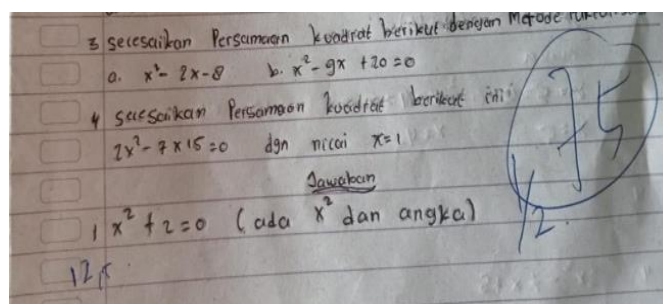 3 selesaikan Persamaan kuadrat berikut dengan Metode
a. x² - 2x - 8 b. x² - 9x + 20 = 0
4 selesaikan Persamaan kuadrat berikut ini
2x² - 7 x 15 = 0 dgn nilai x = 1
Jawaban
1 x² + 2 = 0 (ada x² dan angka)
75